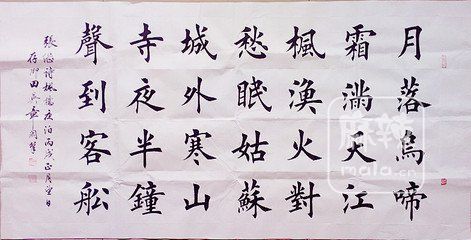 月落烏啼
霜滿天江
楓漁火對
愁眠姑蘇
城外寒山
寺夜半鐘
聲到客船
張繼詩楓橋夜泊丙戌正月望日
麻辣
mala.cn